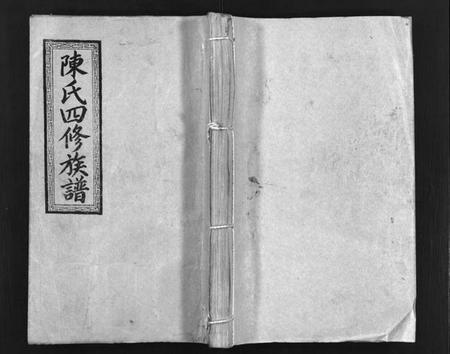 陳氏四修族譜